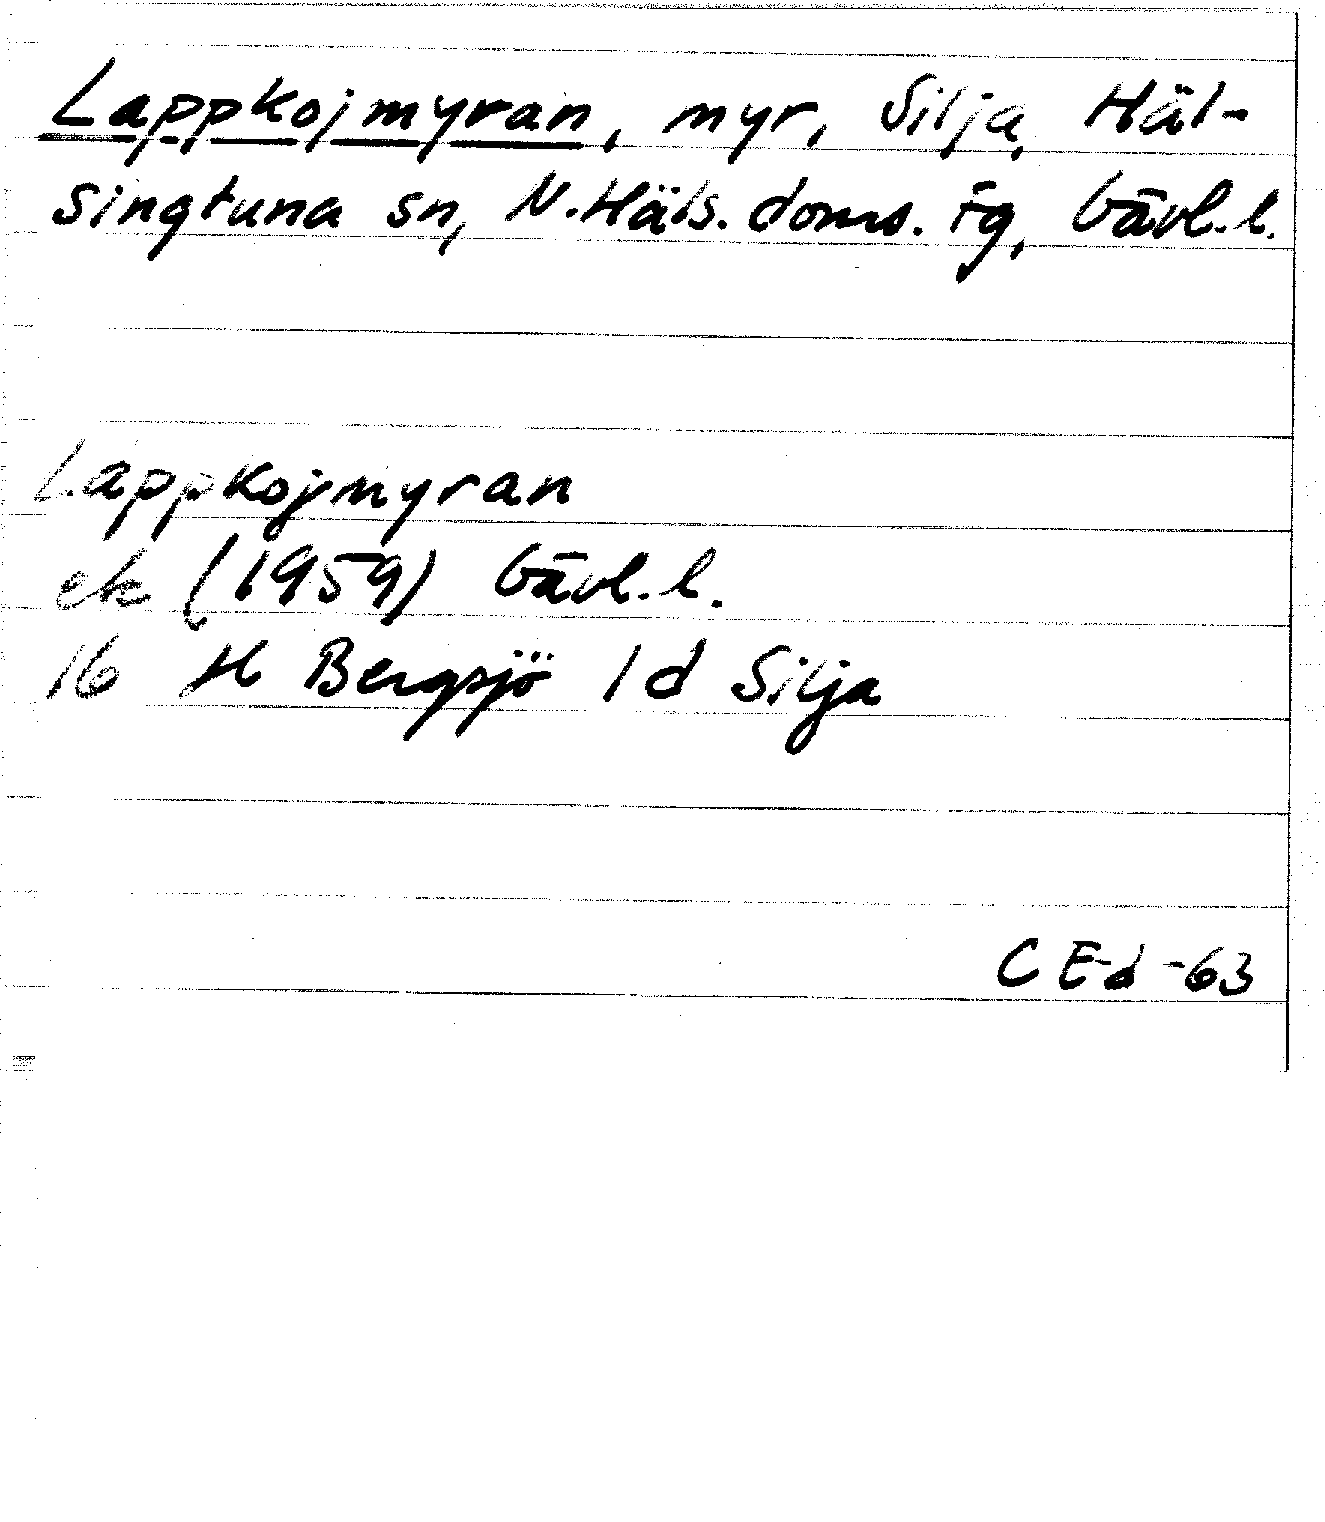 Lappkojmyran, myr, Silja, Häl-
singtuna sn, N.Häls. doms. fg, Gävl.l.
Lappkojmyran
ek (1959) Gävl.l.
16 H Bergsjö 1d Silja
C E-d -63